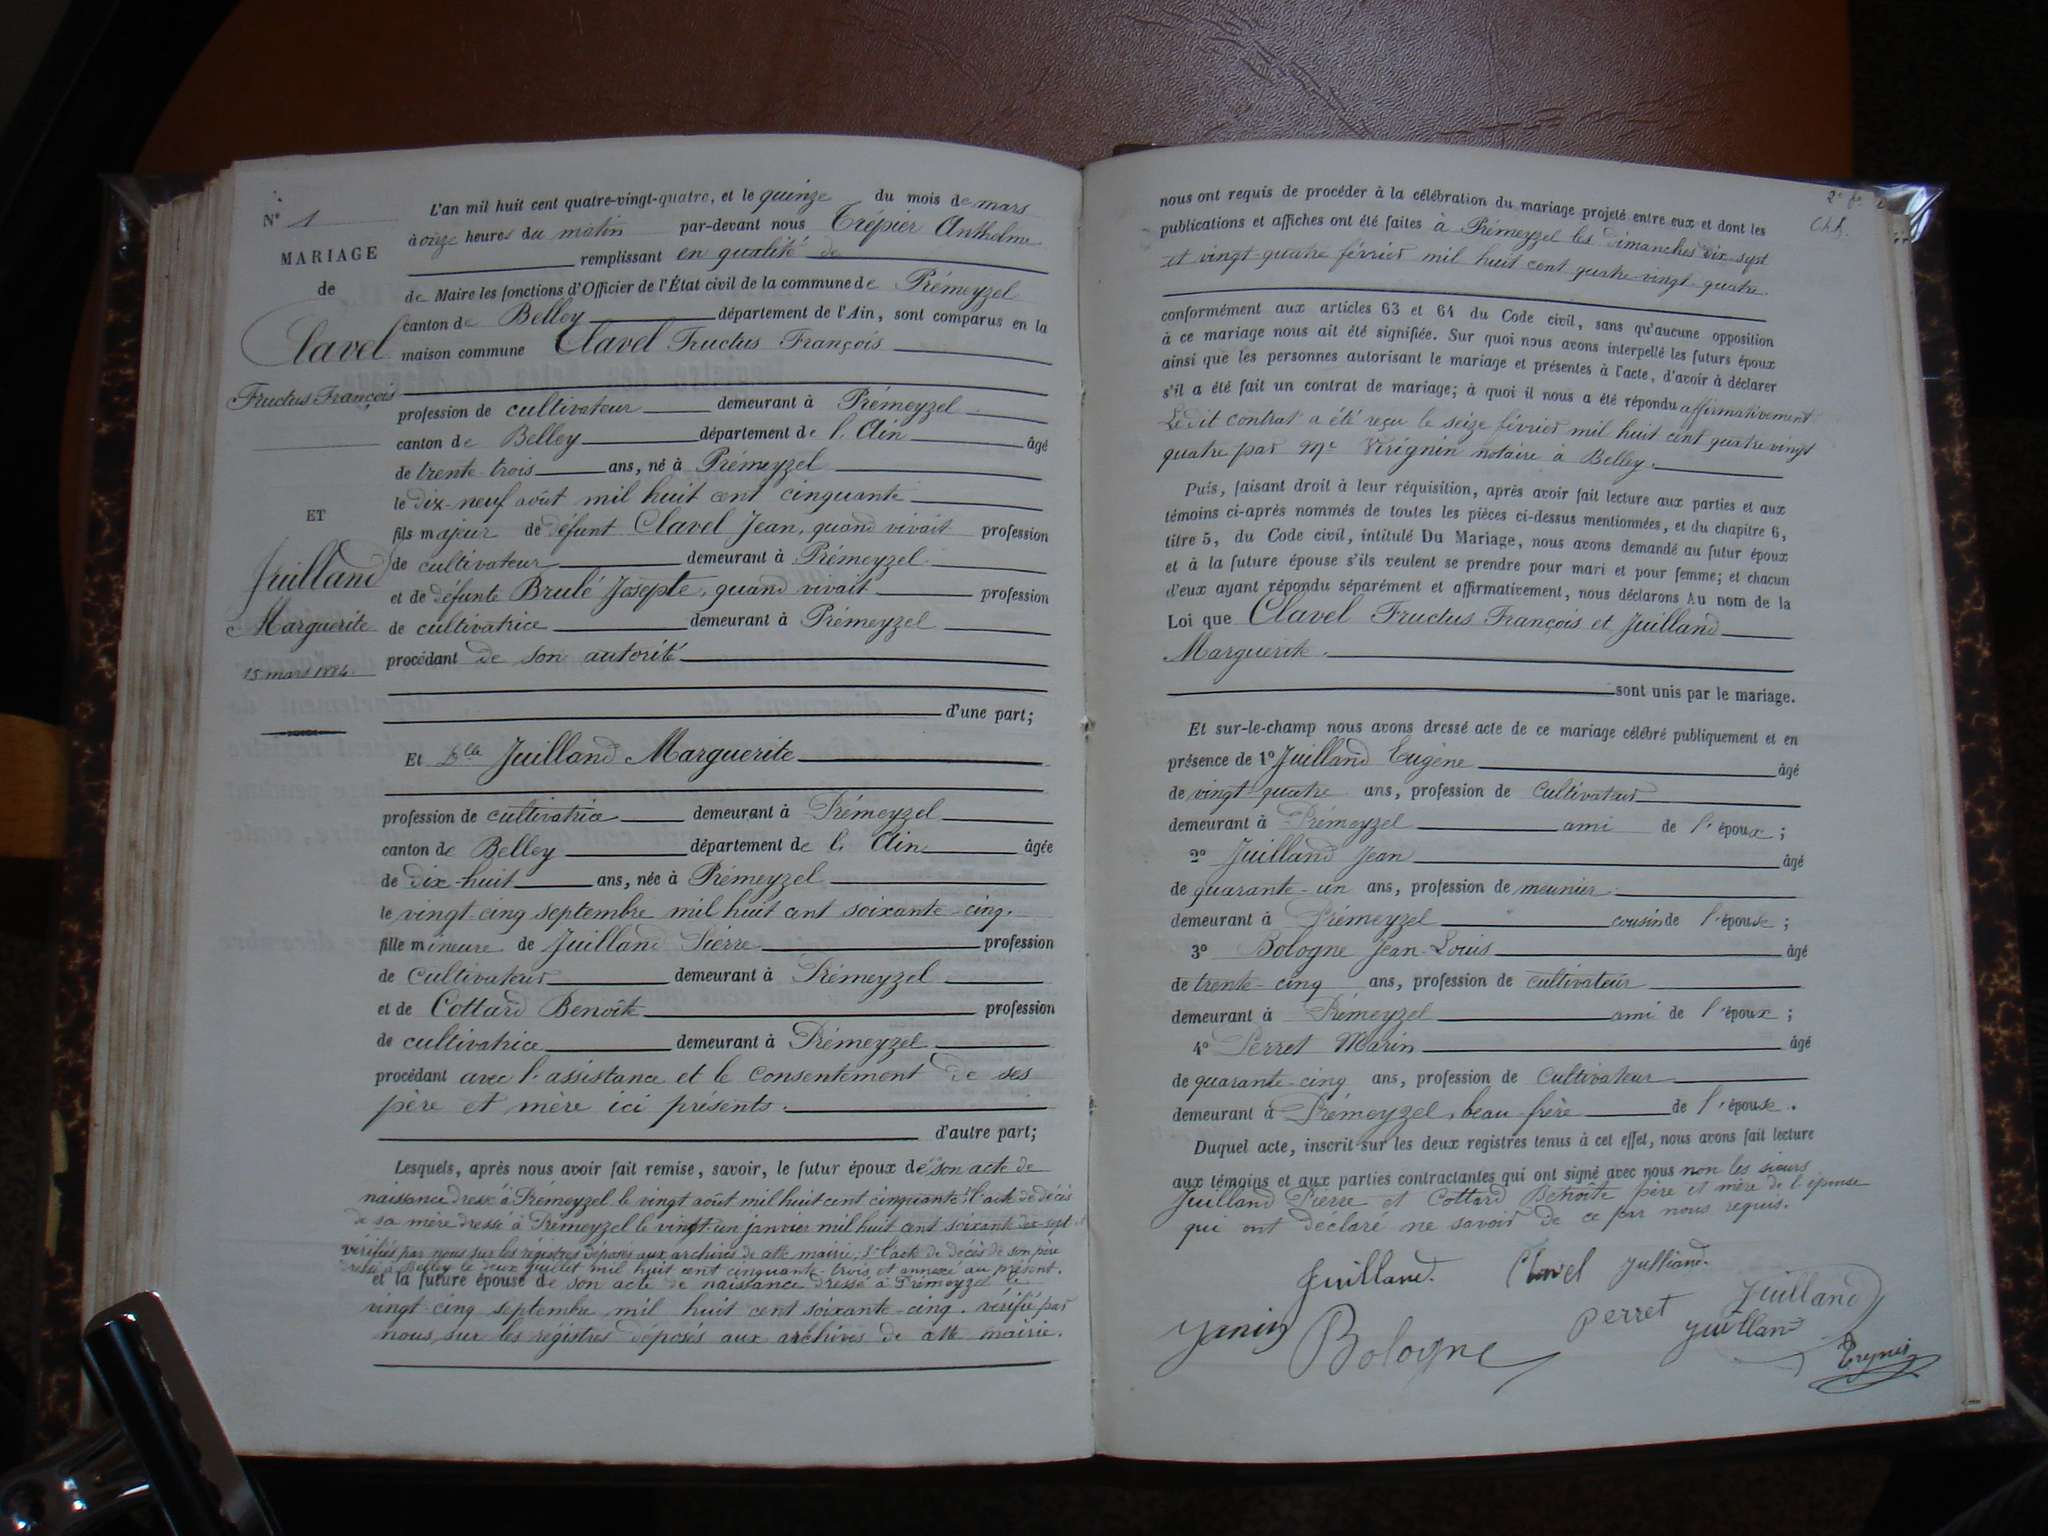 N° 1
MARIAGE
de
Clavel
Fructus François
ET
Juilland
Marguerite
15 mars 1884.
L'an mil huit cent quatre-vingt-quatre, et le quinze du mois de mars
à onze heures du matin par-devant nous Trépier Anthelme
remplissant en qualité de
de Maire les fonctions d'Officier de l'État civil de la commune de Prémeyzel
canton de Belley département de l'Ain, sont comparus en la
maison commune Clavel Fructus François
profession de cultivateur demeurant à Prémeyzel
canton de Belley département de l'Ain âgé
de trente-trois ans, né à Prémeyzel
le dix-neuf août mil huit cent cinquante
fils majeur de défunt Clavel Jean, quand vivait profession
de cultivateur demeurant à Prémeyzel
et de défunte Brulé Josepte, quand vivait profession
de cultivatrice demeurant à Prémeyzel
procédant de son autorité
d'une part;
Et Dlle Juilland Marguerite
profession de cultivatrice demeurant à Prémeyzel
canton de Belley département de l'Ain âgée
de dix-huit ans, née à Prémeyzel
le vingt-cinq septembre mil huit cent soixante-cinq.
fille mineure de Juilland Pierre profession
de cultivateur demeurant à Prémeyzel
et de Cottard Benoîte profession
de cultivatrice demeurant à Prémeyzel
procédant avec l'assistance et le consentement de ses
père et mère ici présents.
d'autre part;
Lesquels, après nous avoir fait remise, savoir, le futur époux de son acte de
naissance dressé à Prémeyzel le vingt août mil huit cent cinquante l'acte de décès
de sa mère dressé à Prémeyzel le vingt-un janvier mil huit cent soixante dix-sept
vérifiés par nous sur les régistres déposés aux archives de cette mairie; l'acte de décès de son père
à Belley le deux juillet mil huit cent cinquante-trois et annexé au présent.
et la future épouse de son acte de naissance dressé à Prémeyzel le
vingt-cinq septembre mil huit cent soixante-cinq. vérifié par
nous sur les régistres déposés aux archives de cette mairie.
nous ont requis de procéder à la célébration du mariage projeté entre eux et dont les
publications et affiches ont été faites à Prémeyzel les dimanches dix-sept
et vingt-quatre février mil huit cent quatre-vingt-quatre.
conformément aux articles 63 et 64 du Code civil, sans qu'aucune opposition
à ce mariage nous ait été signifiée. Sur quoi nous avons interpellé les futurs époux
ainsi que les personnes autorisant le mariage et présentes à l'acte, d'avoir à déclarer
s'il a été fait un contrat de mariage; à quoi il nous a été répondu affirmativement
Le dit contrat a été reçu le seize février mil huit cent quatre vingt
quatre par Me Virignin notaire à Belley.
Puis, faisant droit à leur réquisition, après avoir fait lecture aux parties et aux
témoins ci-après nommés de toutes les pièces ci-dessus mentionnées, et du chapitre 6,
titre 5, du Code civil, intitulé Du Mariage, nous avons demandé au futur époux
et à la future épouse s'ils veulent se prendre pour mari et pour femme; et chacun
d'eux ayant répondu séparément et affirmativement, nous déclarons Au nom de la
Loi que Clavel Fructus François et Juilland
Marguerite.
sont unis par le mariage.
Et sur-le-champ nous avons dressé acte de ce mariage célébré publiquement et en
présence de 1° Juilland Eugène âgé
de vingt-quatre ans, profession de cultivateur
demeurant à Prémeyzel ami de l'époux;
2° Juilland Jean âgé
de quarante-un ans, profession de meunier
demeurant à Prémeyzel cousin de l'épouse;
3° Bologne Jean-Louis âgé
de trente-cinq ans, profession de cultivateur
demeurant à Prémeyzel ami de l'époux;
4° Perret Marin âgé
de quarante-cinq ans, profession de cultivateur
demeurant à Prémeyzel, beau-frère de l'épouse.
Duquel acte, inscrit sur les deux registres tenus à cet effet, nous avons fait lecture
aux témoins et aux parties contractantes qui ont signé avec nous non les sieurs
Juilland Pierre et Cottard Benoîte père et mère de l'épouse
qui ont déclaré ne savoir de ce par nous requis.
Juilland. Clavel Julliand.
Janin Bologne Perret Juilland
Juilland